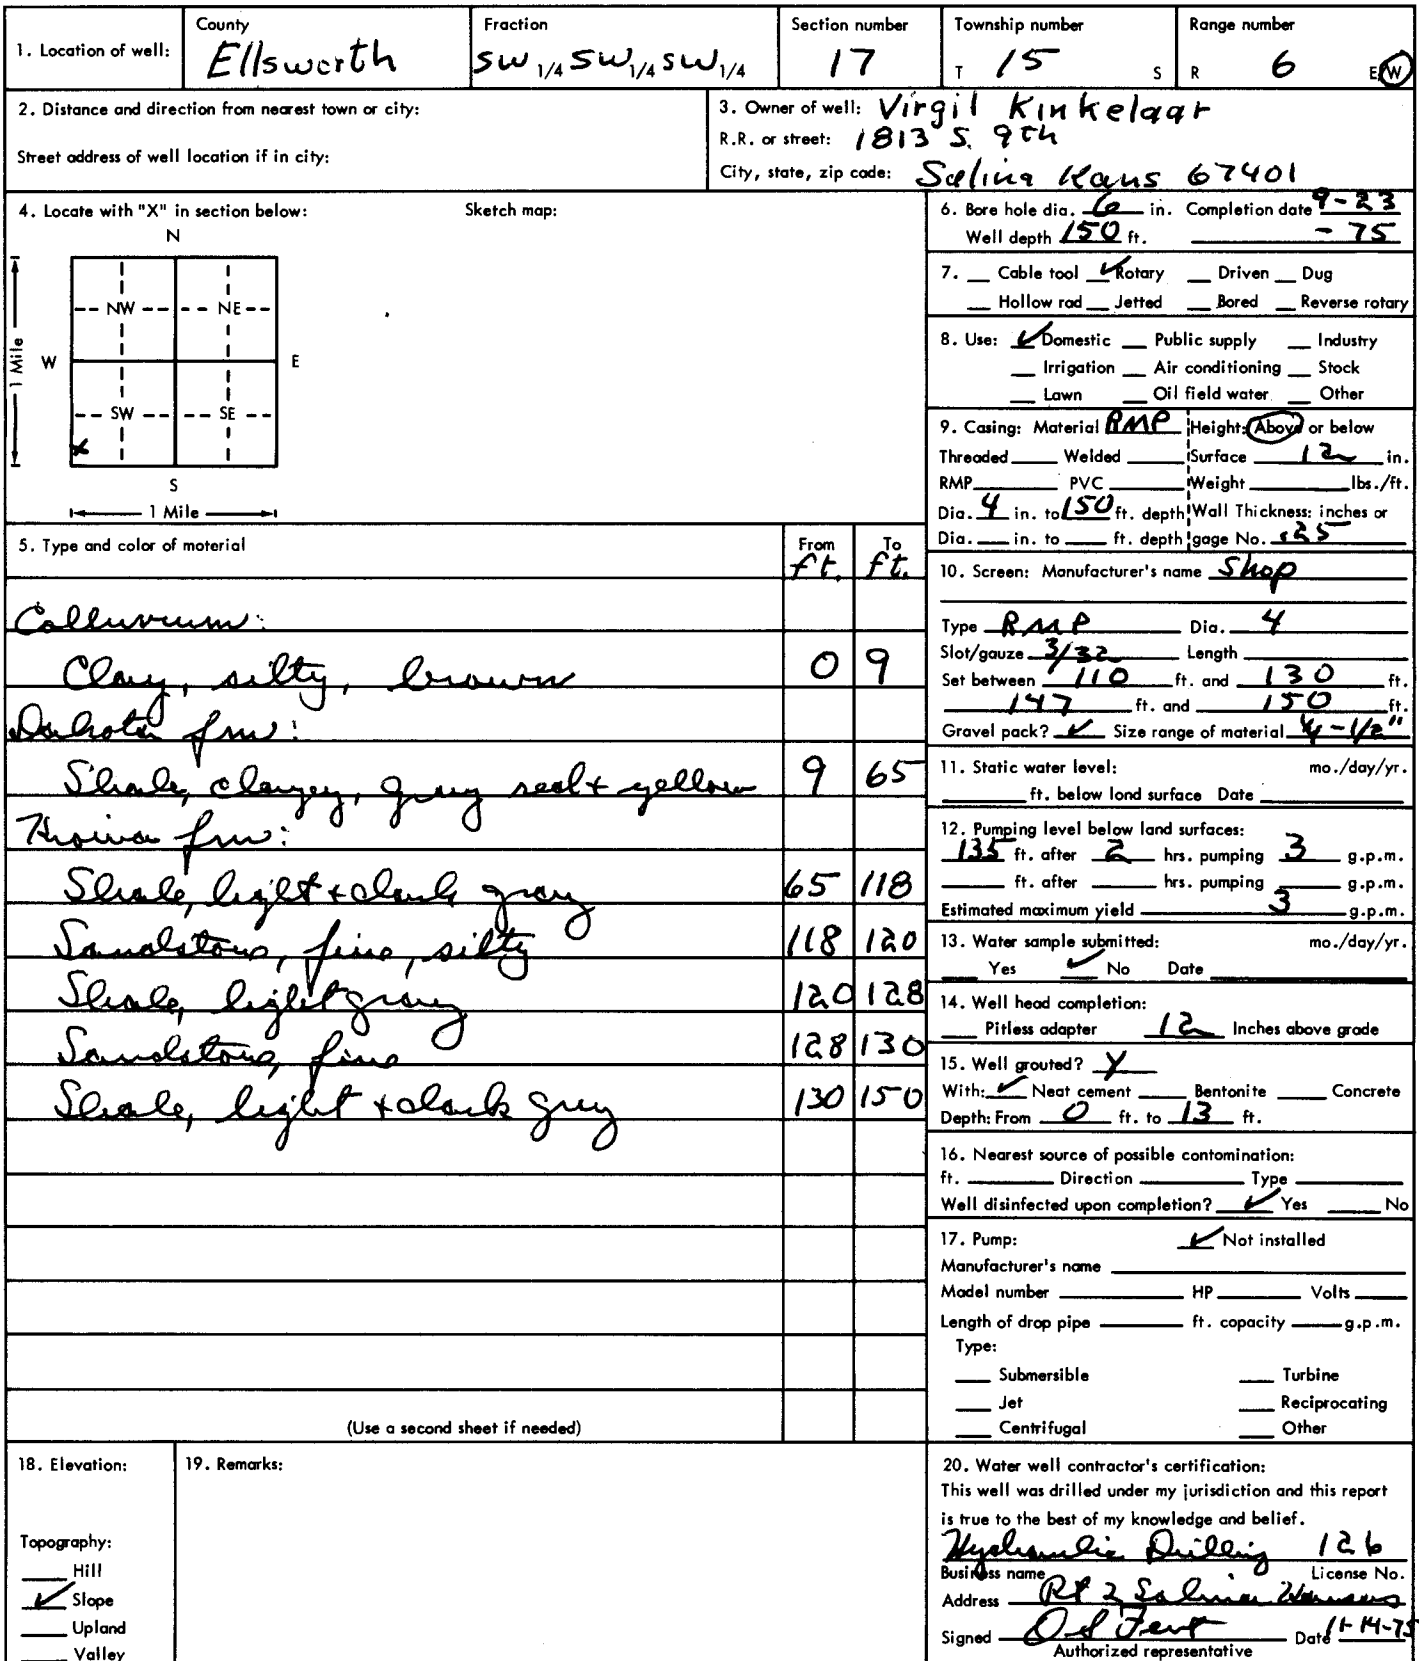 County Fraction Section number Township number Range number
1. Location of well: Ellsworth SW 1/4 SW 1/4 SW 1/4 17 T 15 S R 6 E/W
2. Distance and direction from nearest town or city:
Street address of well location if in city:
3. Owner of well: Virgil Kinkelaar
R.R. or street: 1813 S. 9th
City, state, zip code: Salina Kans 67401
4. Locate with "X" in section below: Sketch map:
N
NW NE
W E
1 Mile
SW SE
X
S
1 Mile
5. Type and color of material From To
ft. ft.
Colluvium:
Clay, silty, brown 0 9
Dakota fm:
Shale, clayey, gray red + yellow 9 65
Kiowa fm:
Shale, light + dark gray 65 118
Sandstone, fine, silty 118 120
Shale, light gray 120 128
Sandstone, fine 128 130
Shale, light + dark gray 130 150
(Use a second sheet if needed)
6. Bore hole dia. 6 in. Completion date 9-23
Well depth 150 ft. -75
7. Cable tool ✓ Rotary Driven Dug
Hollow rod Jetted Bored Reverse rotary
8. Use: ✓ Domestic Public supply Industry
Irrigation Air conditioning Stock
Lawn Oil field water Other
9. Casing: Material RMP Height: Above or below
Threaded Welded Surface 12 in.
RMP PVC Weight lbs./ft.
Dia. 4 in. to 150 ft. depth Wall Thickness: inches or
Dia. in. to ft. depth gage No. .25
10. Screen: Manufacturer's name Shop
Type RMP Dia. 4
Slot/gauze 3/32 Length
Set between 110 ft. and 130 ft.
147 ft. and 150 ft.
Gravel pack? ✓ Size range of material 1/4 - 1/2"
11. Static water level: mo./day/yr.
ft. below land surface Date
12. Pumping level below land surfaces:
135 ft. after 2 hrs. pumping 3 g.p.m.
ft. after hrs. pumping g.p.m.
Estimated maximum yield 3 g.p.m.
13. Water sample submitted: mo./day/yr.
Yes ✓ No Date
14. Well head completion:
Pitless adapter 12 Inches above grade
15. Well grouted? Y
With: ✓ Neat cement Bentonite Concrete
Depth: From 0 ft. to 13 ft.
16. Nearest source of possible contomination:
ft. Direction Type
Well disinfected upon completion? ✓ Yes No
17. Pump: ✓ Not installed
Manufacturer's name
Model number HP Volts
Length of drop pipe ft. capacity g.p.m.
Type:
Submersible Turbine
Jet Reciprocating
Centrifugal Other
18. Elevation:
Topography:
Hill
✓ Slope
Upland
Valley
19. Remarks:
20. Water well contractor's certification:
This well was drilled under my jurisdiction and this report
is true to the best of my knowledge and belief.
Hydraulic Drilling 126
Business name License No.
Address Rt 2 Salina Kansas
Signed O S Fent Date 11-14-75
Authorized representative